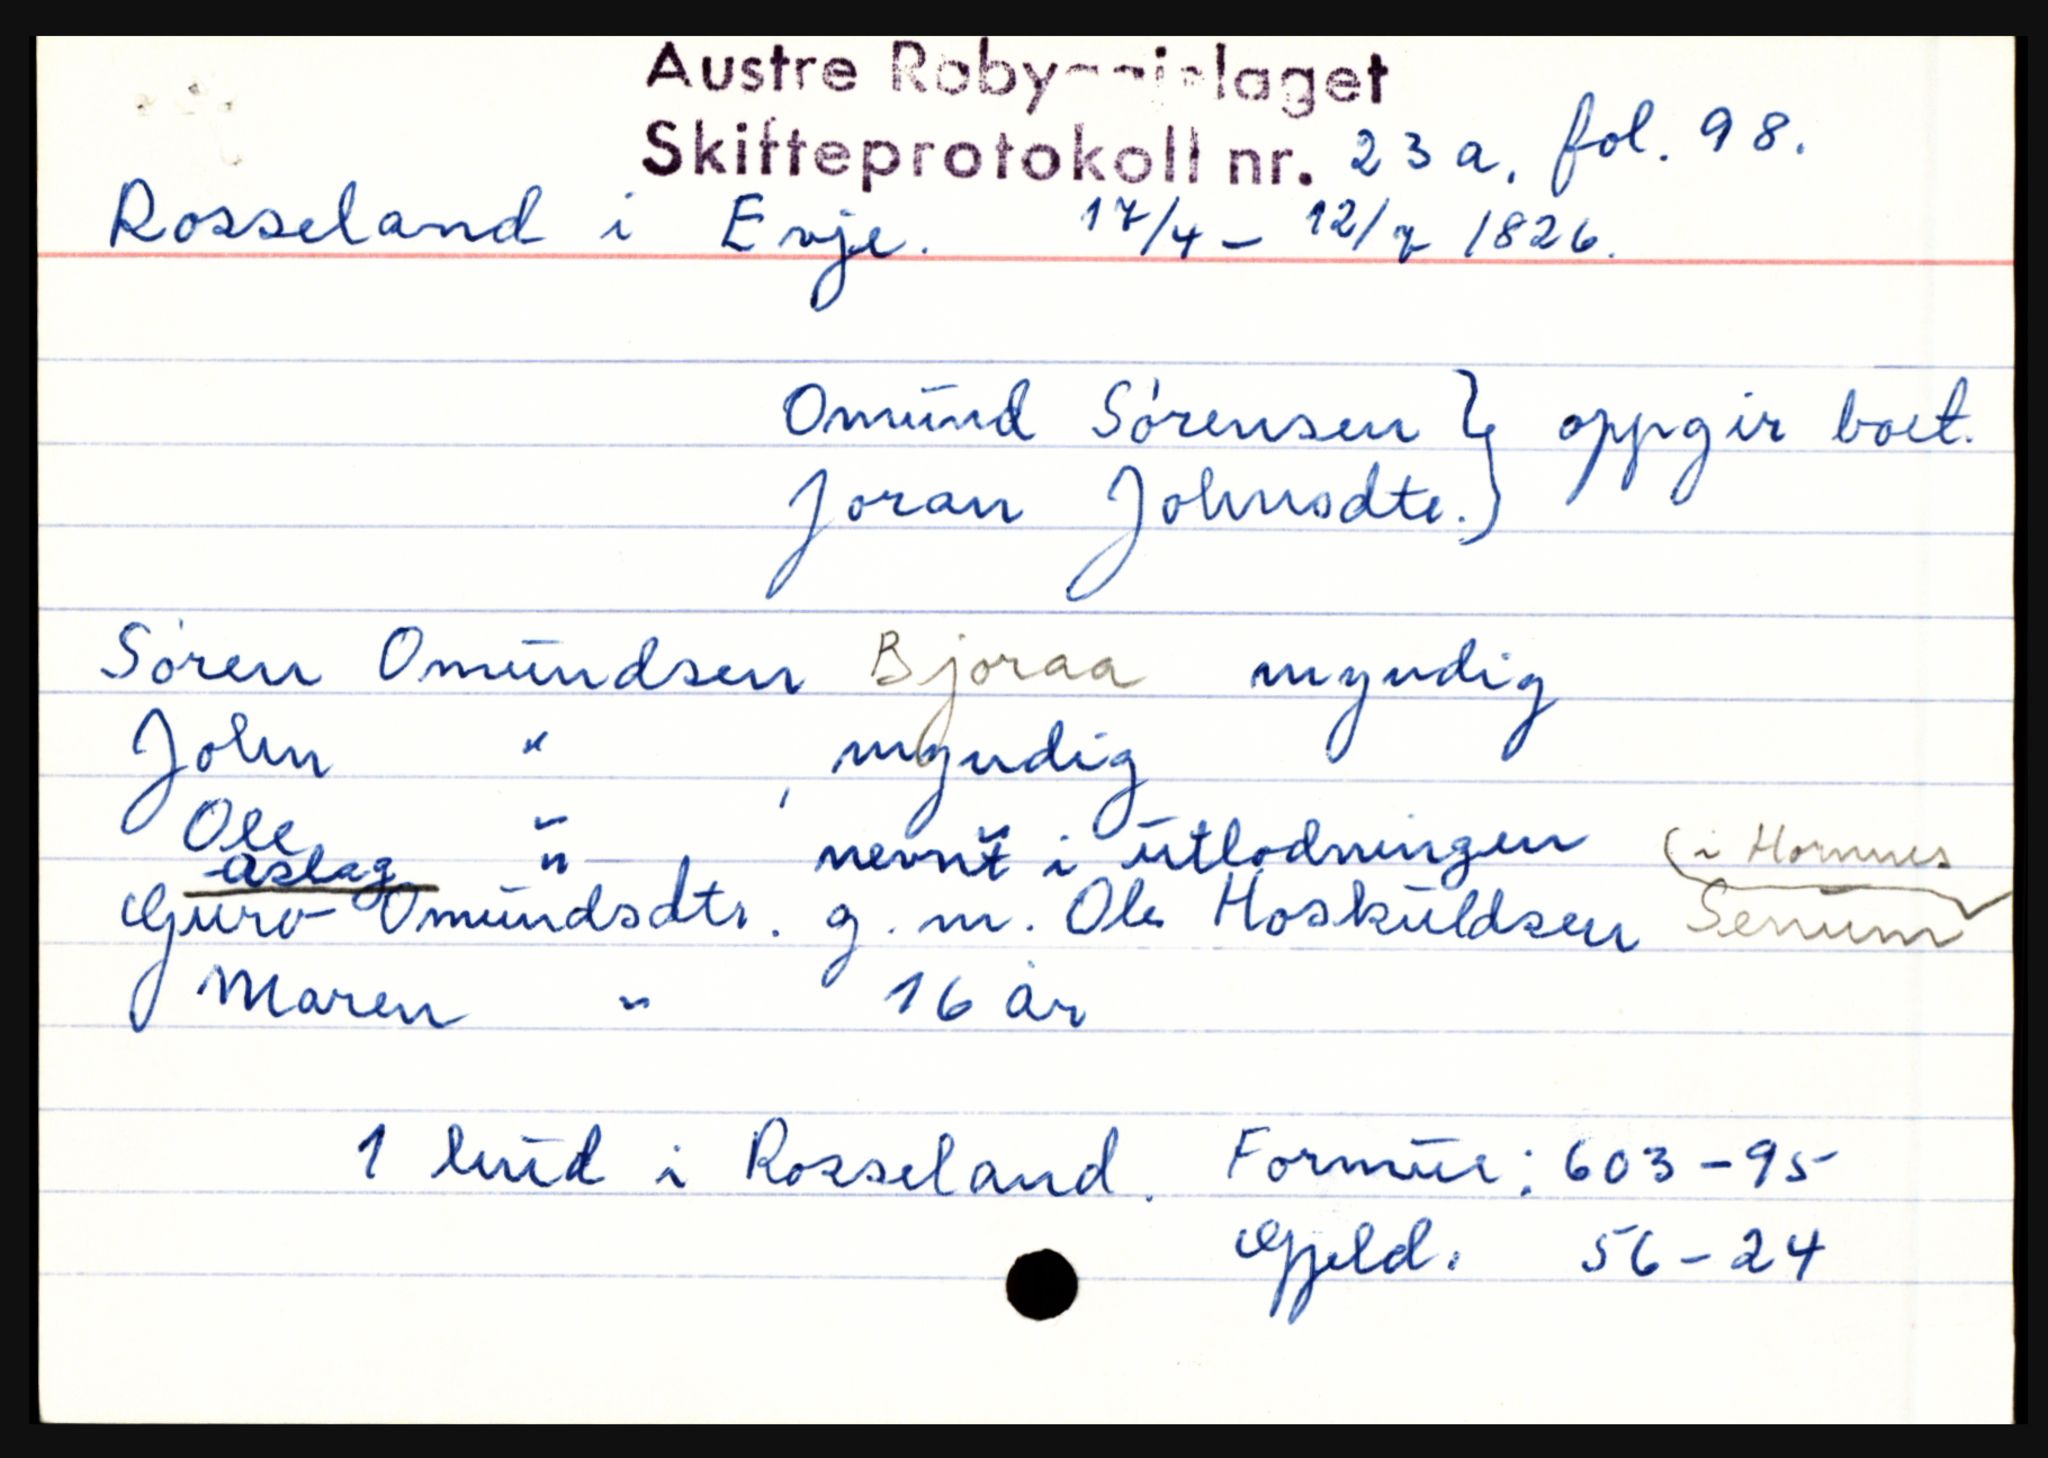 Austre Robyggjelaget
Skifteprotokoll nr. 23a. fol. 98.
Rosseland i Evje. 17/4 - 12/7 1826.
Omund Sörensen } oppgir boet.
Joran Johnsdtr. }
Sören Omundsen Bjoraa myndig
John " , myndig
Ole "
Aslag " nevnt i utlodningen (i Hornnes
Guro Omundsdtr. g. m. Ole Hoskuldsen Senum
Maren " 16 år
1 hud i Rosseland. Formue: 603-95
Gjeld. 56-24